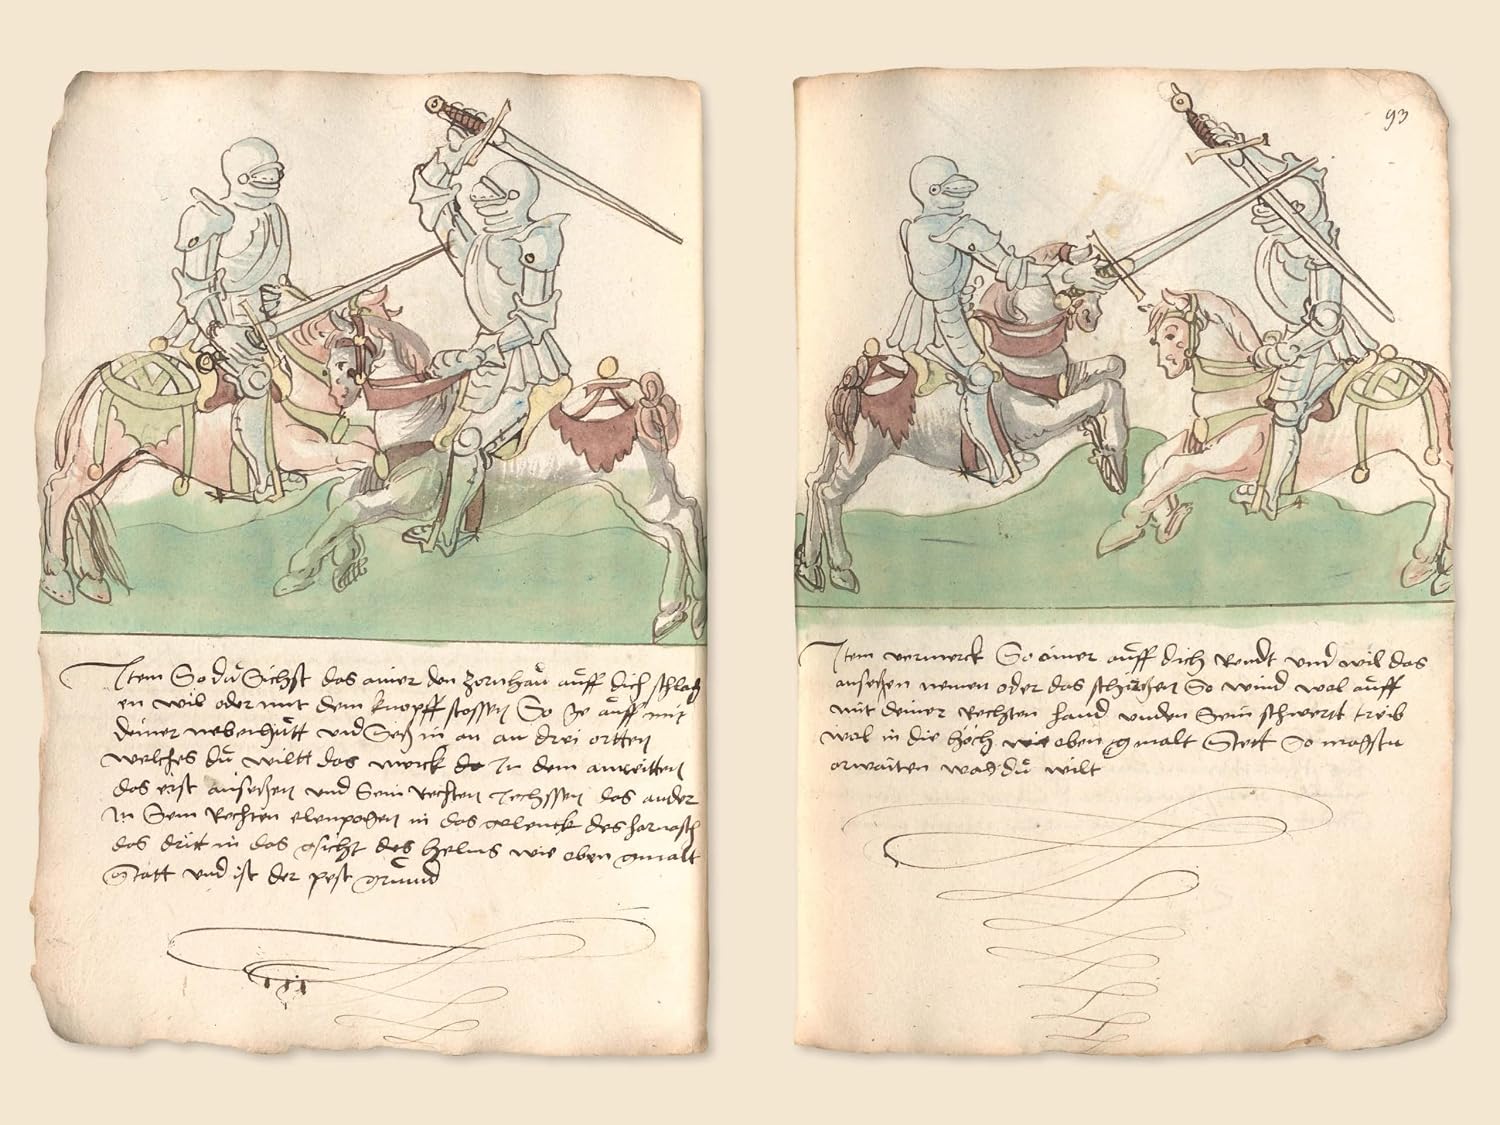 Item So du Sichst das ainer den zornhaŭ aŭff dich schlach
en wil oder mit dem knopff stossen So ge aŭff mit
deiner nebenhŭtt vnd Secz in an an drei ortten
welches dŭ wiltt das merck do In dem anreitten
das erst anseczen vnd Sein rechsten Iechssen das ander
In Sein Rechten elenpogen in das gelenck des harnasch
das dritt in das gsicht des helms wie oben gmalt
Statt vnd ist der pest grŭnd
Item vermerck So ainer aŭff dich Rendt vnd wil das
anseczen nemen oder das schiessen So wind wol aŭff
mit deiner Rechten hand vnden Sein schwertt treib
wol in die hoch wie oben gmalt Stett So magstu
erwaiten was dŭ wilt
93